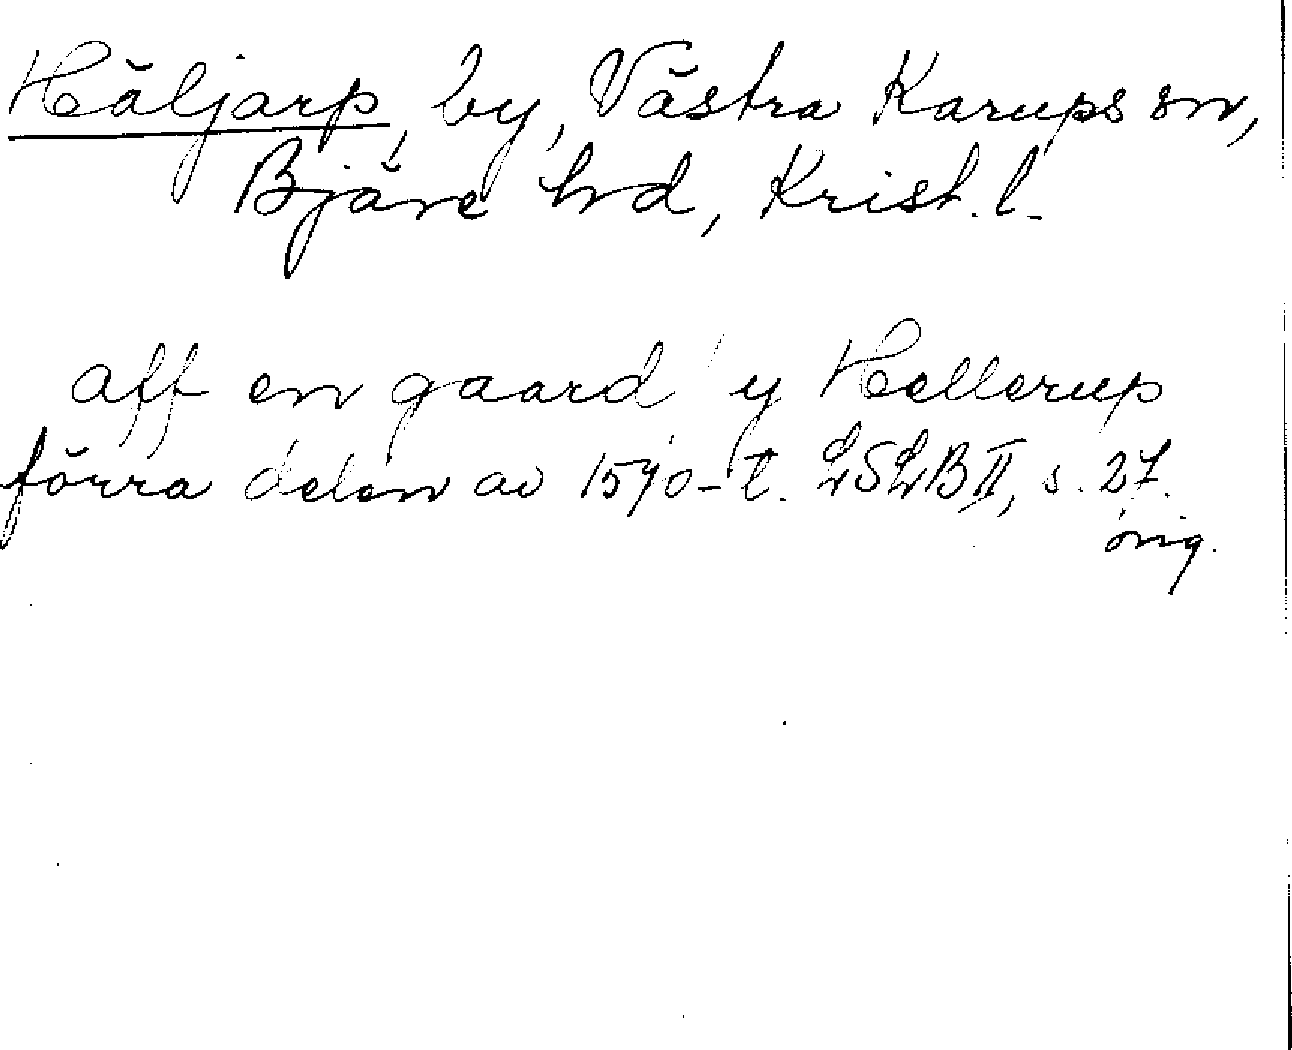 Häljarp, by, Västra Karups sn,
Bjäre hd, Krist. l.
aff en gaard y Hellerup
förra delen av 1590-t. LSLB II, s. 27.
orig.